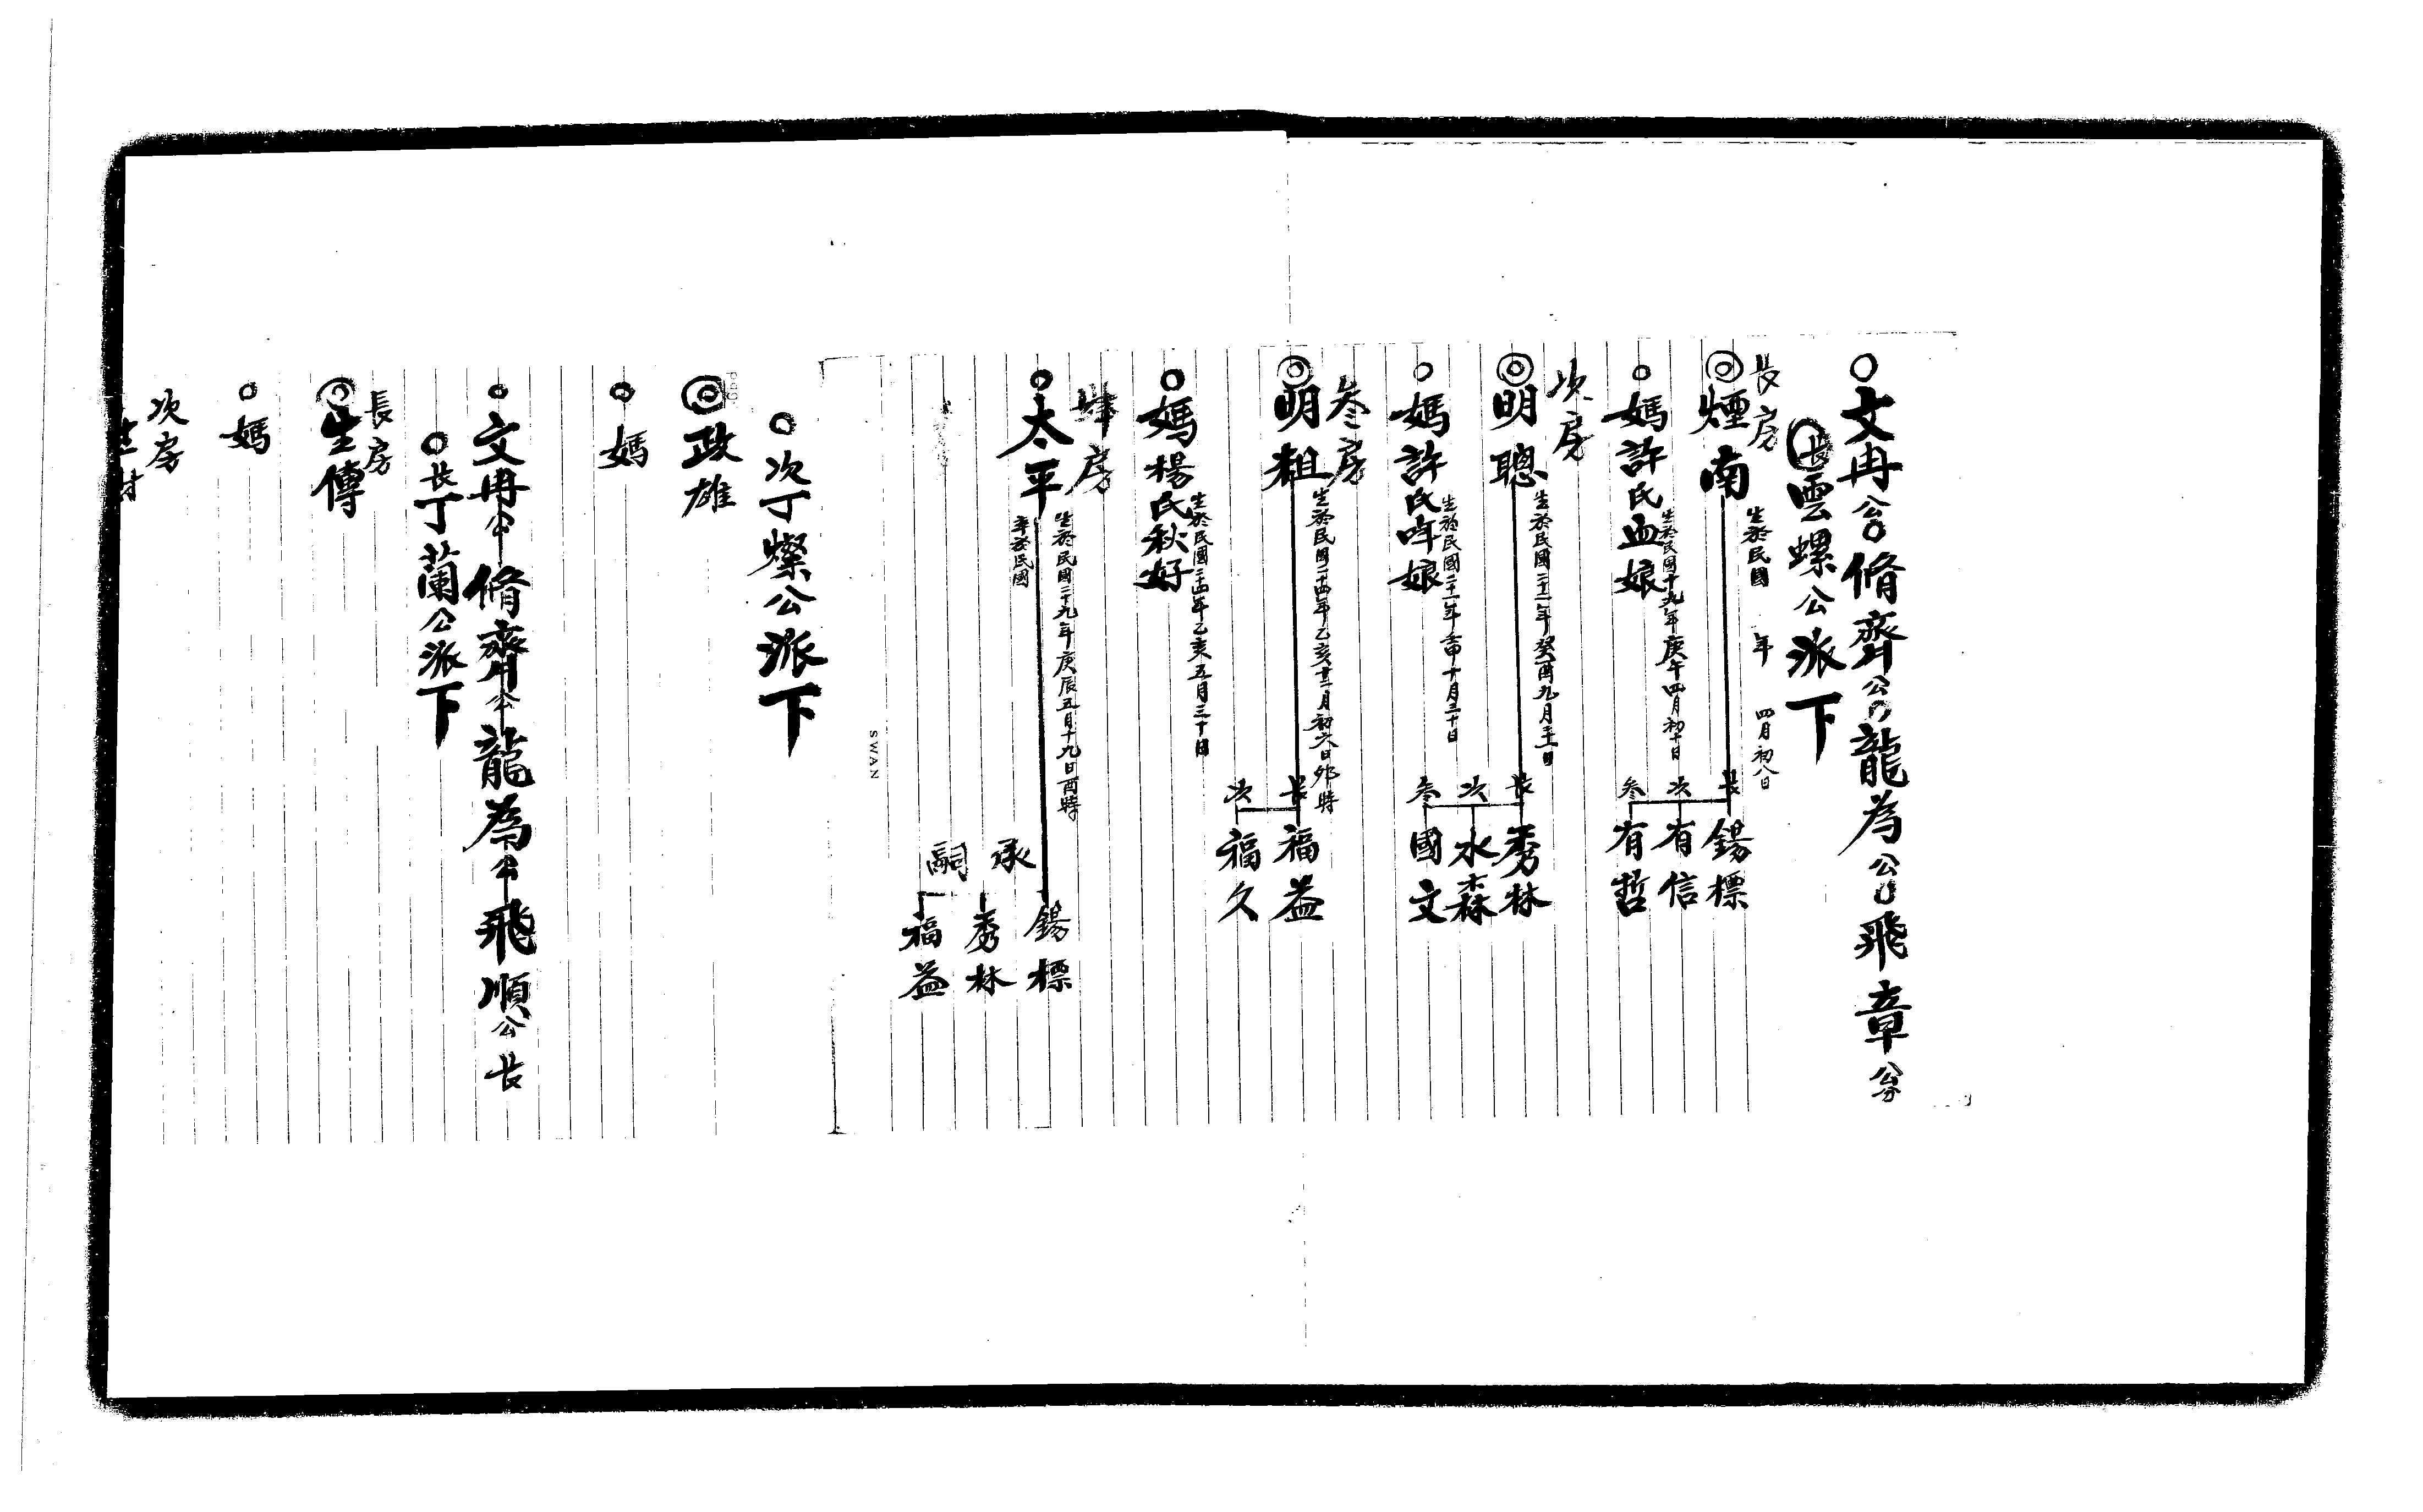 文冉公脩齊公龍為公飛章公
長雲螺公派下
長房
煙南
生於民國 年 四月初八日
長 錫標
次 有信
叁 有哲
媽許氏血娘
生於民國十九年庚午四月初十日
次房
明聰
生於民國二十二年癸酉九月
長 秀林
次 水森
叁 國文
媽許氏哖娘
生於民國二十一年壬申十月二十日
叁房
明粗
生於民國二十四年乙亥十二月初六日卯時
長 福益
次 福久
媽楊氏秋好
生於民國二十四年乙亥五月三十日
肆房
太平
生於民國二十九年庚辰五月十九日酉時
卒於民國
承嗣
錫標
秀林
福益
SWAN
次丁燦公派下
政雄
媽
文冉公脩齊公龍為公飛順公長
長丁蘭公派下
長房
生傳
媽
次房